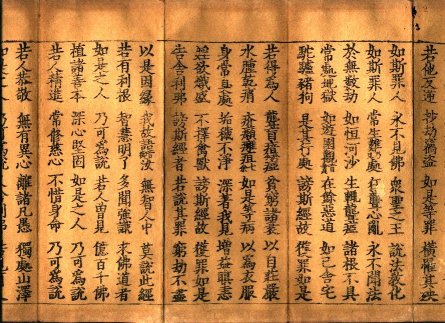 若他反逆 抄劫竊盜 如是等罪 橫羅其殃
如斯罪人 永不見佛 衆聖之王 說法教化
如斯罪人 常生難處 狂聾心亂 永不聞法
於無數劫 如恒河沙 生輒聾瘂 諸根不具
常處地獄 如遊園觀 在餘惡道 如己舍宅
駝驢猪狗 是其行處 謗斯經故 獲罪如是
若得爲人 聾盲瘖瘂 貧窮諸衰 以自莊嚴
水腫乾痟 疥癩癰疽 如是等病 以爲衣服
身常臭處 垢穢不淨 深著我見 增益瞋恚
婬欲熾盛 不擇禽獸 謗斯經故 獲罪如是
告舍利弗 謗斯經者 若說其罪 窮劫不盡
以是因緣 我故語汝 無智人中 莫說此經
若有利根 智慧明了 多聞強識 求佛道者
如是之人 乃可爲說 若人曾見 億百千佛
植諸善本 深心堅固 如是之人 乃可爲說
若人精進 常修慈心 不惜身命 乃可爲說
若人恭敬 無有異心 離諸凡愚 獨處山澤